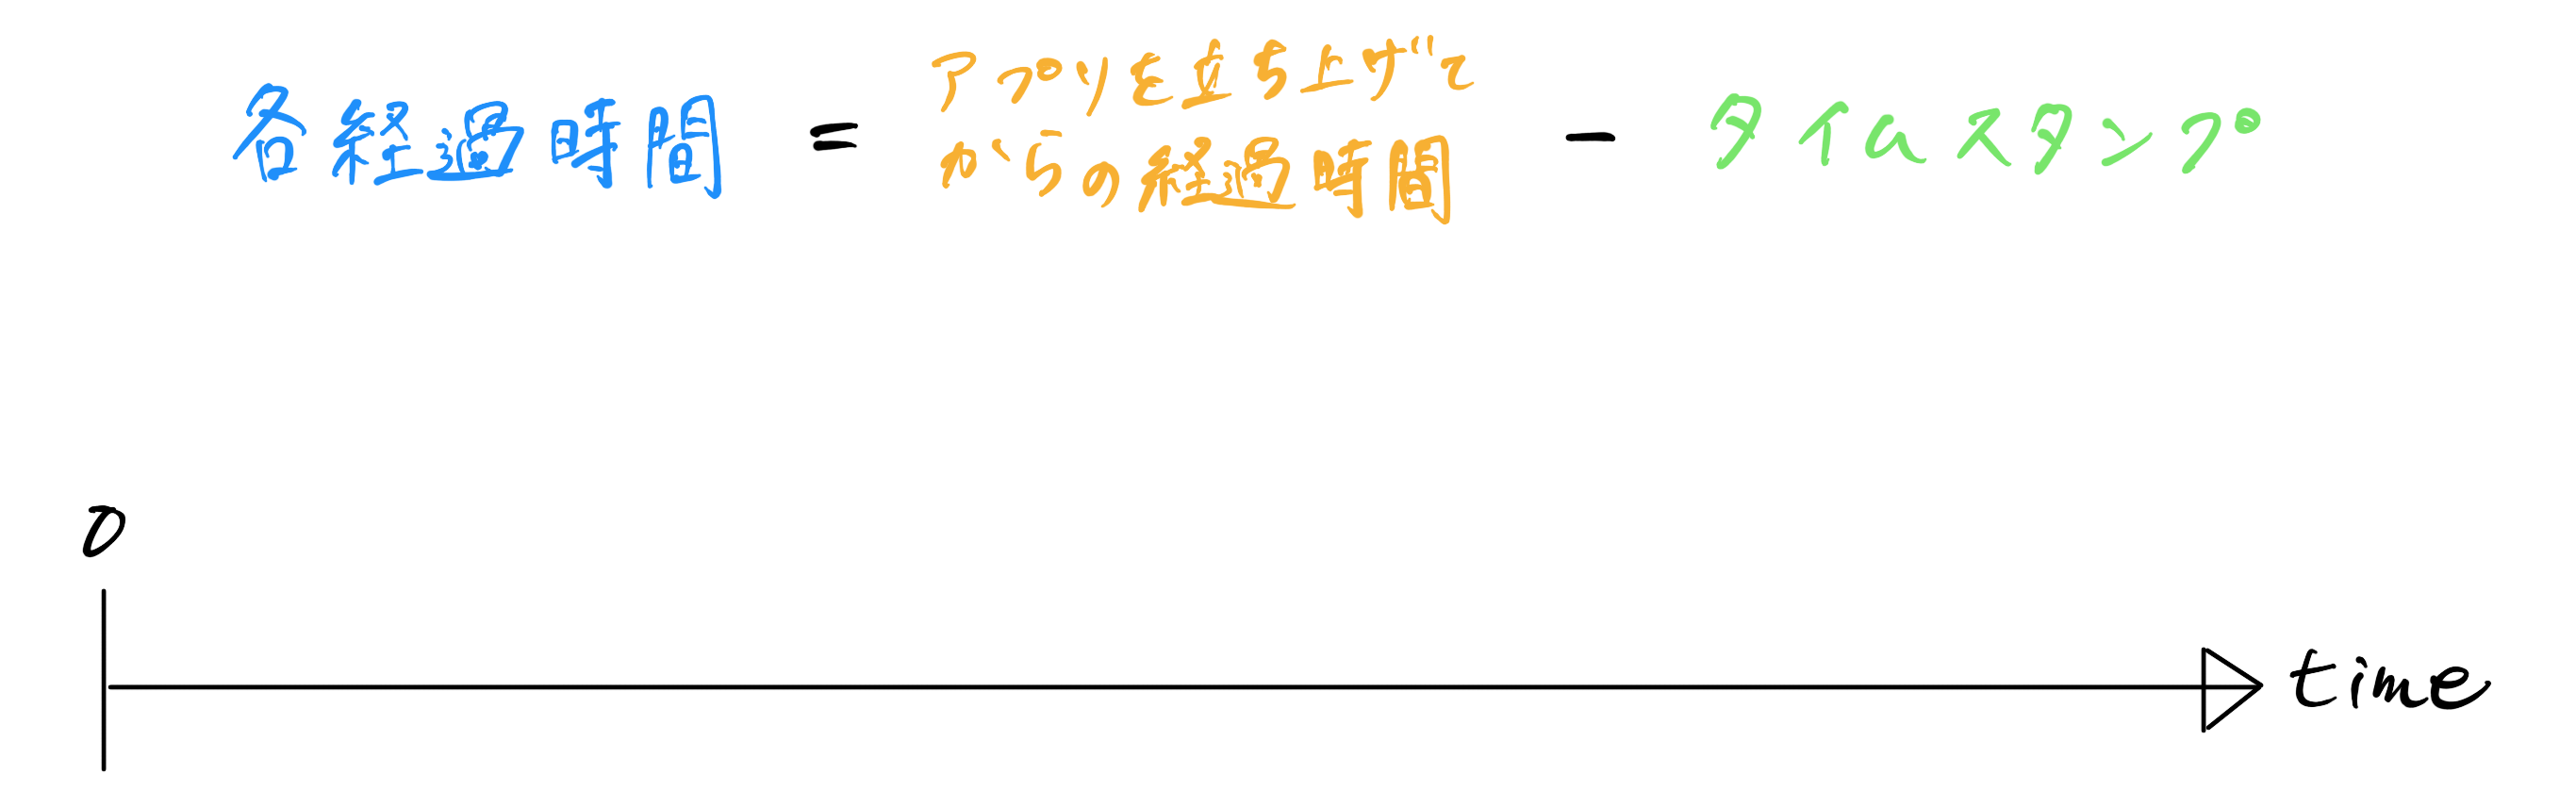 各経過時間 = アプリを立ち上げて
からの経過時間 - タイムスタンプ
0
time